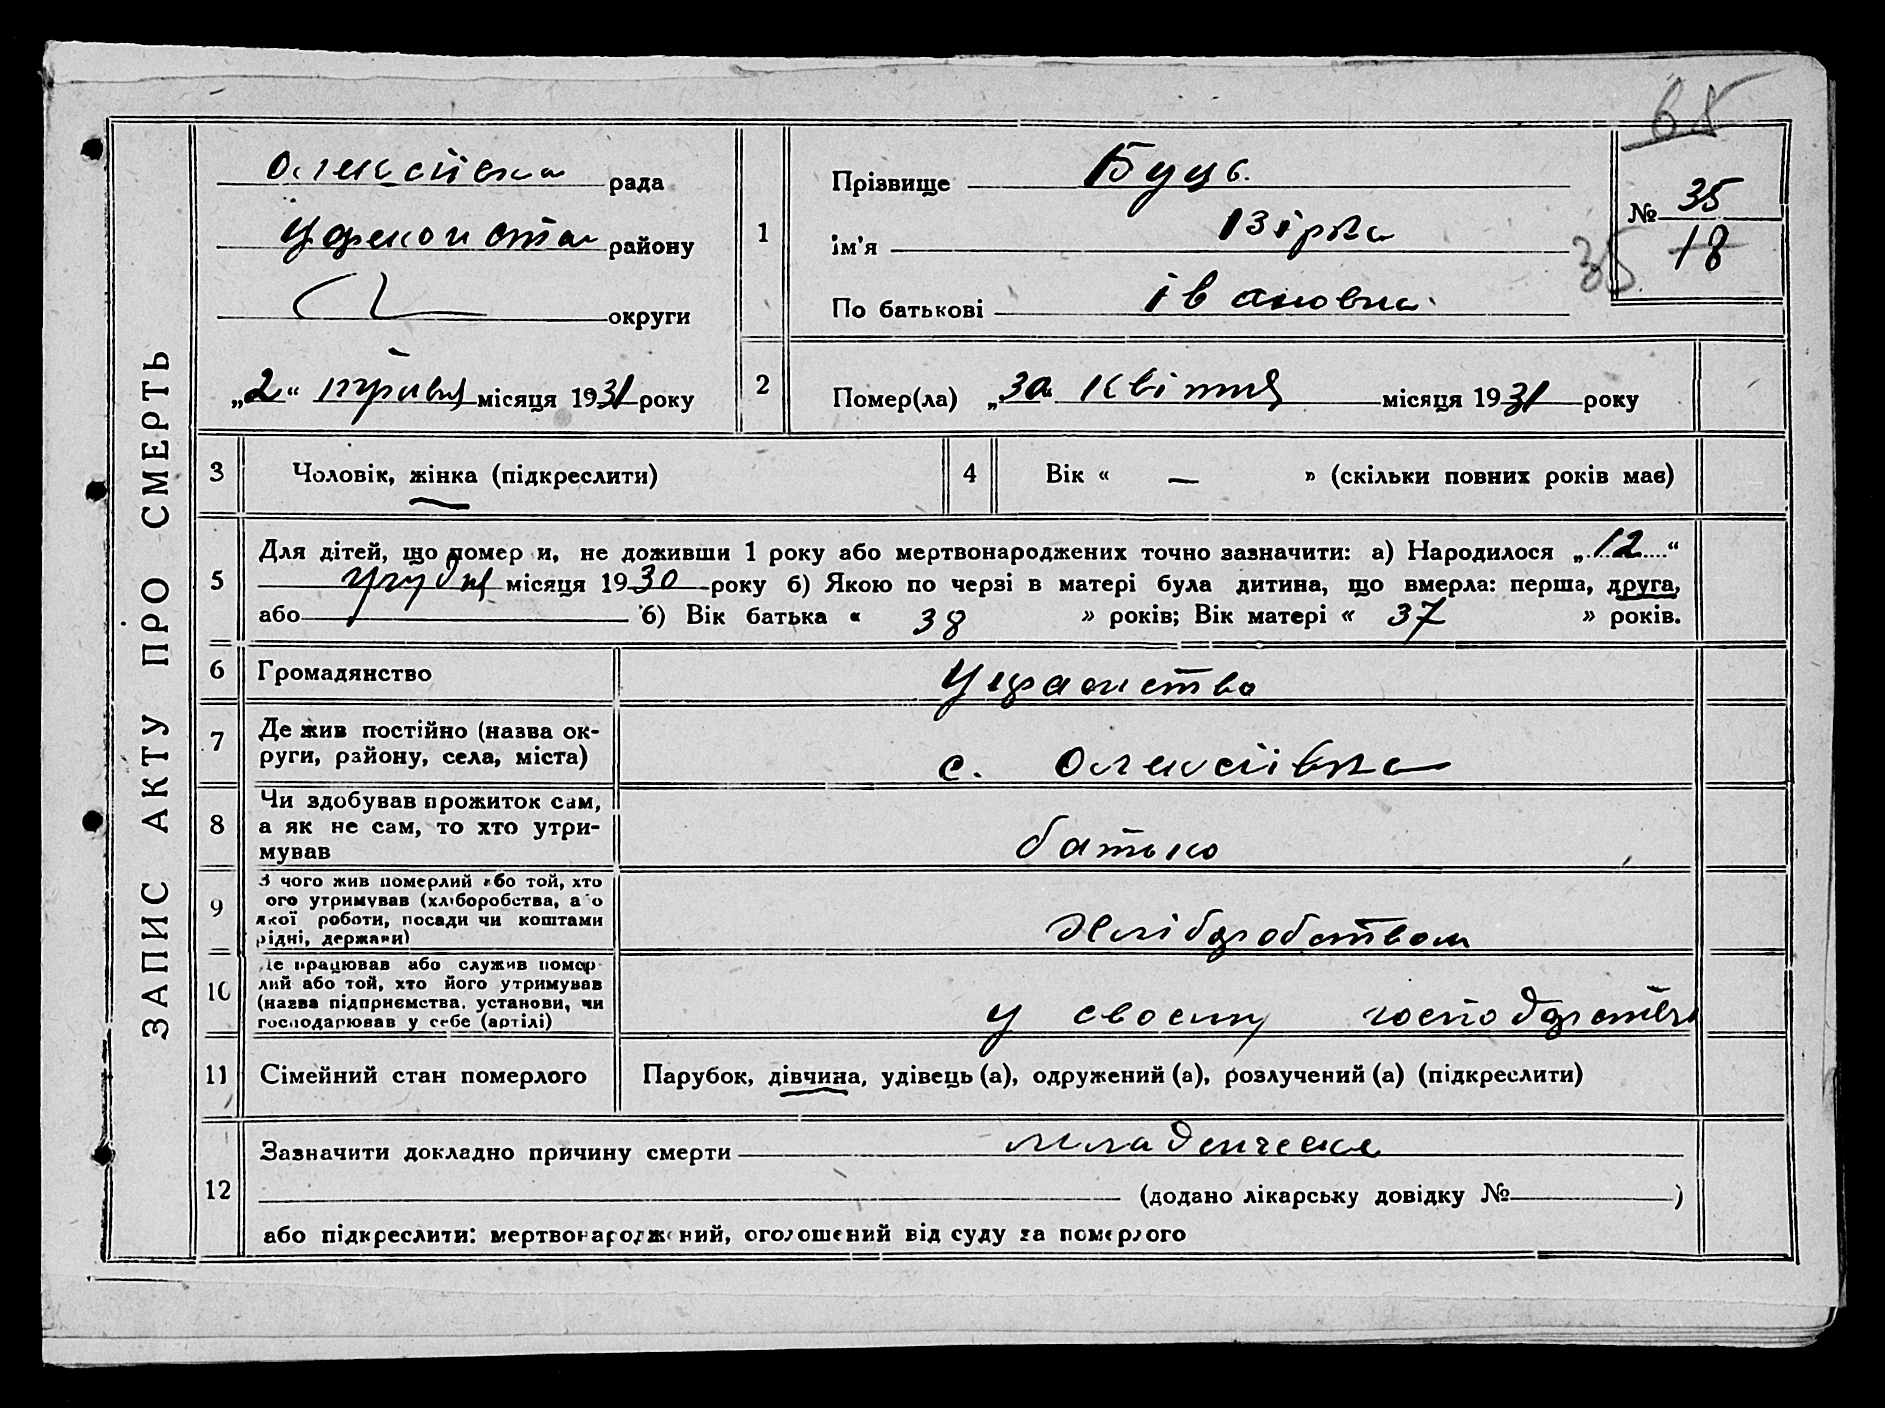 65
ЗАПИС АКТУ ПРО СМЕРТЬ
Олексіївка рада
району
округи
„2“ травня місяця 1931 року
1
Прізвище Буць.
Ім'я Зірка
По батькові Івановна.
№ 35
18
35
2
Помер(ла) „30“ Квітня місяця 1931 року
3 Чоловік, жінка (підкреслити)
4 Вік « — » (скільки повних років має)
5
Для дітей, що помер и, не доживши 1 року або мертвонароджених точно зазначити: а) Народилося „12“
грудня місяця 1930 року б) Якою по черзі в матері була дитина, що вмерла: перша, друга,
або б) Вік батька « 38 » років; Вік матері « 37 » років.
6 Громадянство
7 Де жив постійно (назва ок-
руги, району, села, міста)
с. Олексіївка
8
Чи здобував прожиток сам,
а як не сам, то хто утри-
мував
батько
9
З чого жив померлий або той, хто
ого утримував (хліборобства, або
якої роботи, посади чи коштами
рідні, держави)
Хліборобством
10
Де працював або служив помер-
лий або той, хто його утримував
(назва підприємства, установи, чи
господарював у себе (артілі)
у своєму господарстві
11 Сімейний стан померлого
Парубок, дівчина, удівець (а), одружений (а), розлучений (а) (підкреслити)
12
Зазначити докладно причину смерти младенческа
(додано лікарську довідку № )
або підкреслити: мертвонароджений, оголошений від суду за померлого